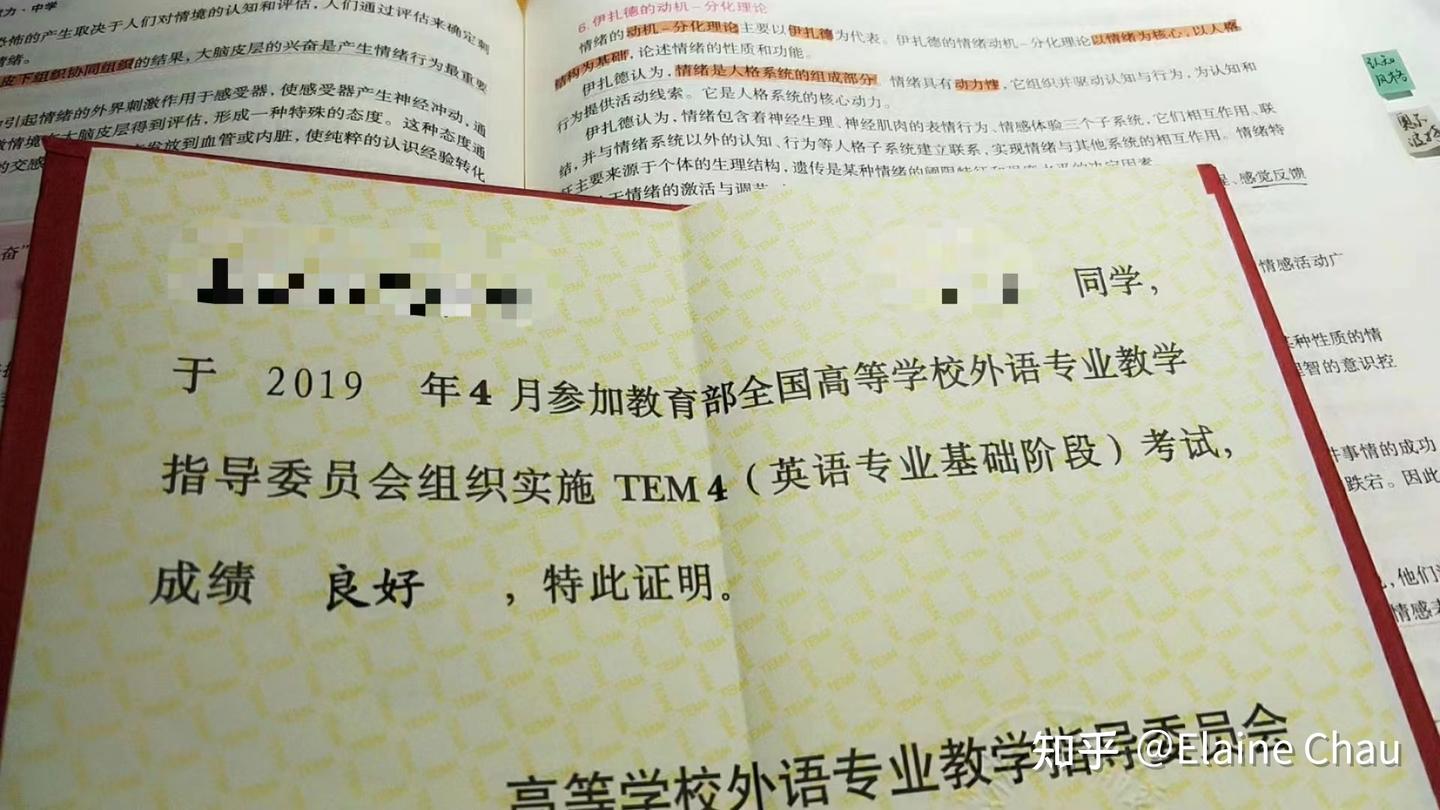 力·中学
恐怖的产生取决于人们对情境的认知和评估，人们通过评估来确定刺
情绪。
皮下组织协同组织的结果，大脑皮层的兴奋是产生情绪行为最重要
引起情绪的外界刺激作用于感受器，使感受器产生神经冲动，通
大脑皮层得到评估，形成一种特殊的态度。这种态度通
发放到血管或内脏，使纯粹的认识经验转化
的交感
奋”
6. 伊扎德的动机-分化理论
情绪的动机-分化理论主要以伊扎德为代表。伊扎德的情绪动机-分化理论以情绪为核心，以人格
结构为基础，论述情绪的性质和功能。
伊扎德认为，情绪是人格系统的组成部分。情绪具有动力性，它组织并驱动认知与行为，为认知和
行为提供活动线索。它是人格系统的核心动力。
伊扎德认为，情绪包含着神经生理、神经肌肉的表情行为、情感体验三个子系统，它们相互作用、联
结，并与情绪系统以外的认知、行为等人格子系统建立联系，实现情绪与其他系统的相互作用。情绪特
征主要来源于个体的生理结构，遗传是某种情绪的阈限特征和强度水平的决定因素。
于情绪的激活与调节
、感觉反馈
认知
风格
情感活动广
某种性质的情
理智的意识控
件事情的成功
跌宕。因此
，他们
情感
同学，
于 2019 年 4 月参加教育部全国高等学校外语专业教学
指导委员会组织实施 TEM 4（英语专业基础阶段）考试，
成绩 良好 ，特此证明。
高等学校外语专业教学指导委员会
知乎 @Elaine Chau